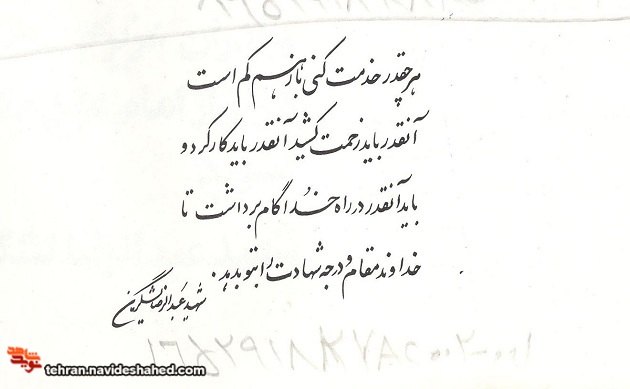 هر چقدر خدمت کنی باز هم کم است
آنقدر باید زحمت کشید آنقدر باید کار کرد و
باید آنقدر در راه خدا گام برداشت تا
خداوند مقام و درجه شهادت را بتو بدهد.
شهید عبدالرضا
نوید شاهد
tehran.navideshahed.com